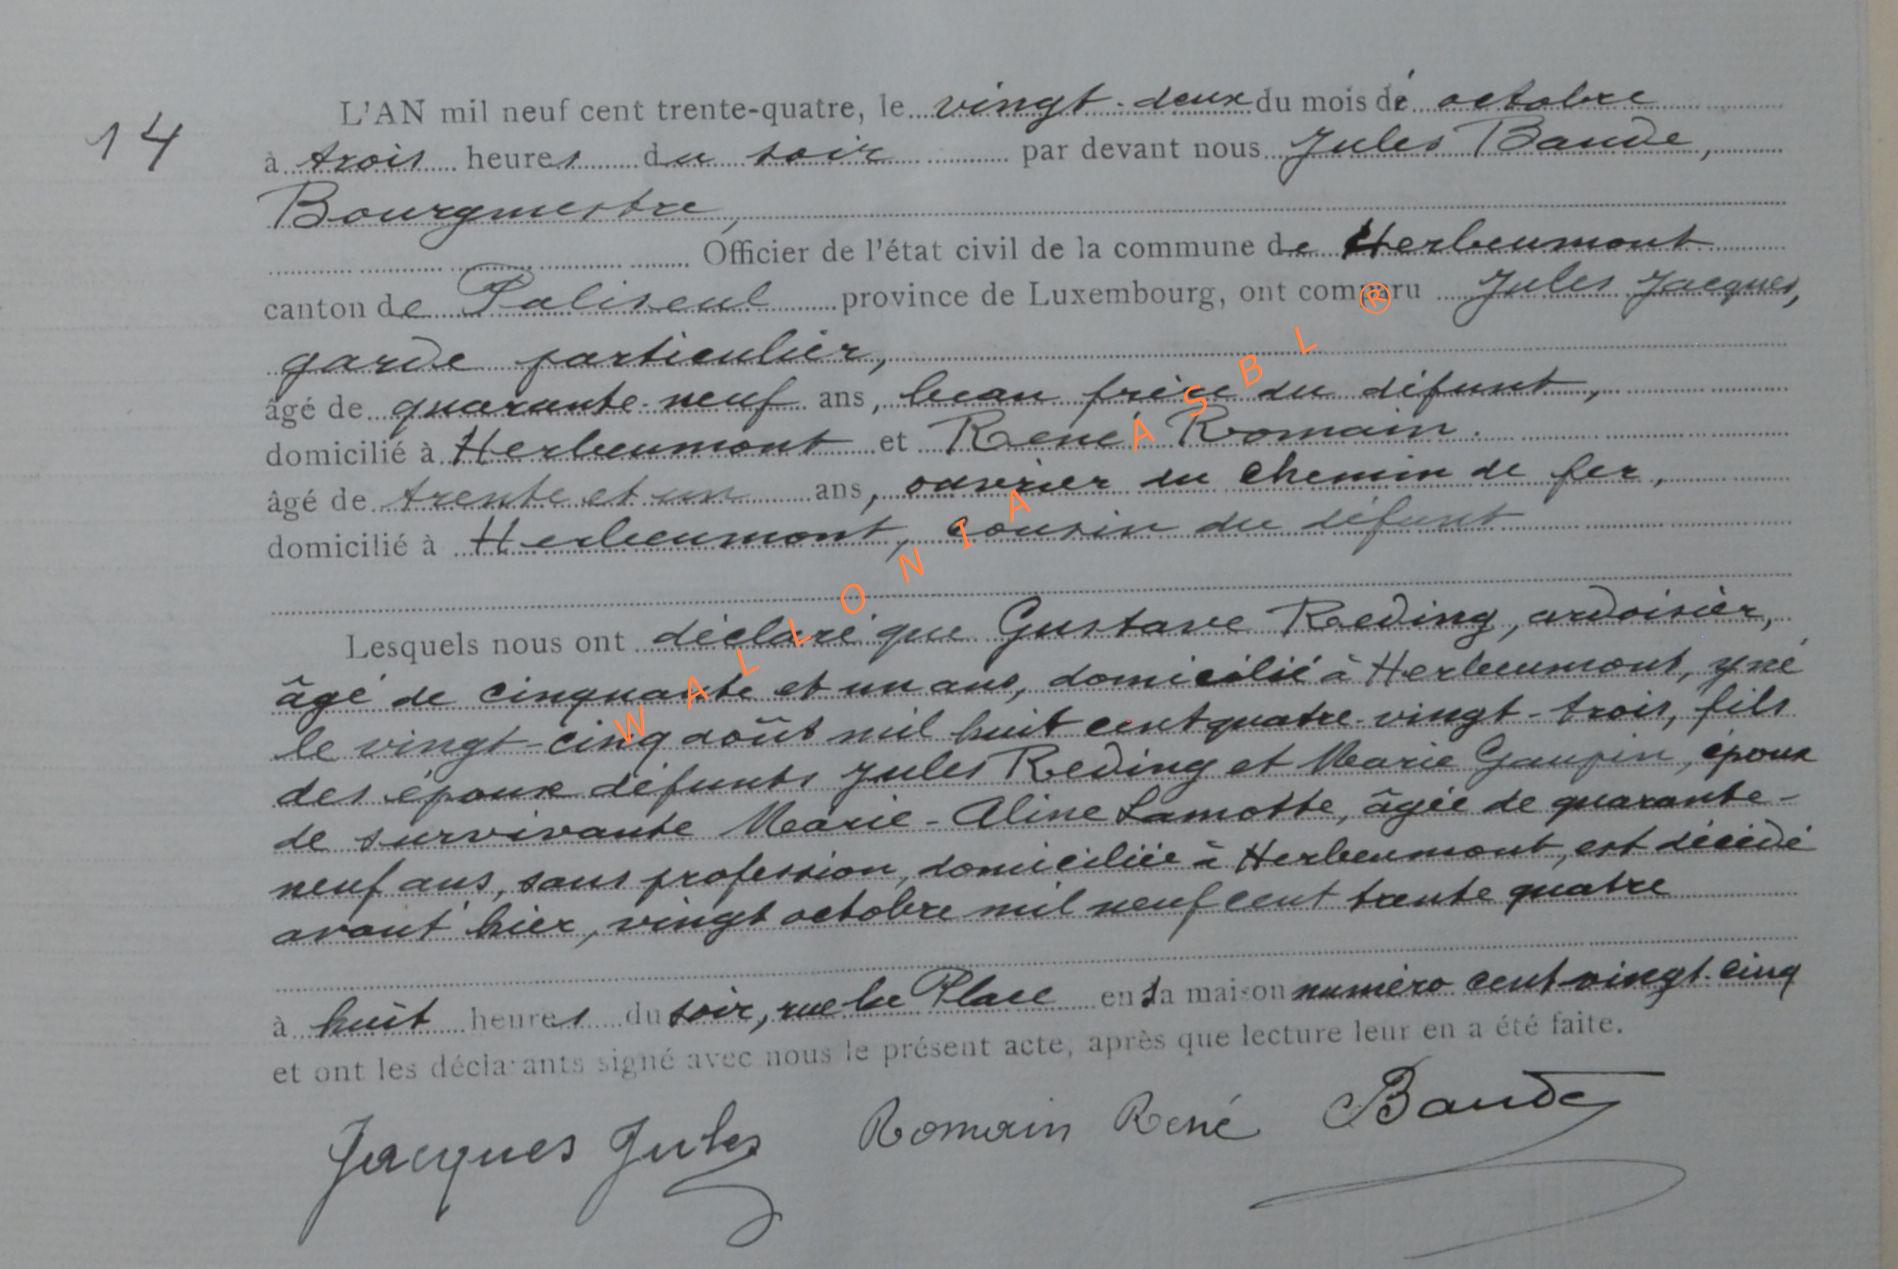 14
L'AN mil neuf cent trente-quatre, le vingt-deux du mois de octobre
à trois heures du soir par devant nous Jules Baude,
Bourgmestre,
Officier de l'état civil de la commune de Herbeumont
canton de Paliseul province de Luxembourg, ont comparu Jules Jacques,
garde particulier,
âgé de quarante-neuf ans, beau frère du défunt,
domicilié à Herbeumont et René Romain.
âgé de trente et un ans, ouvrier du chemin de fer,
domicilié à Herbeumont, cousin du défunt
Lesquels nous ont déclaré que Gustave Reding, ardoisier,
âgé de cinquante et un ans, domicilié à Herbeumont, y né
le vingt-cinq août mil huit cent quatre-vingt-trois, fils
des époux défunts Jules Reding et Marie Gaupin, époux
de survivante Marie-Aline Lamotte, âgée de quarante-
neuf ans, sans profession, domiciliée à Herbeumont, est décédé
avant hier, vingt octobre mil neuf cent trente quatre
à huit heures du soir, rue la Place en sa maison numéro cent vingt-cinq
et ont les déclarants signé avec nous le présent acte, après que lecture leur en a été faite.
Jacques Jules Romain René Baude
WALLONIA ASBL ®